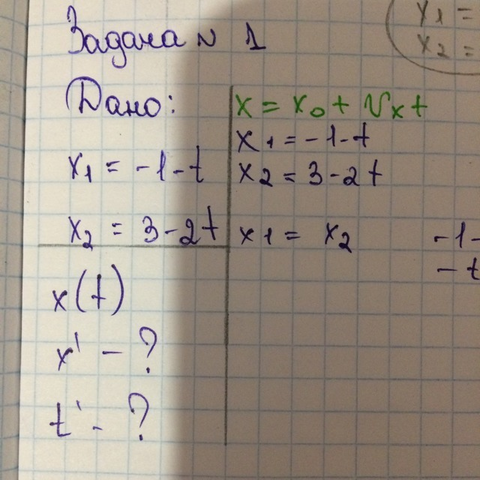 Задача № 1
x1 =
x2 =
Дано:
x1 = -1-t
x2 = 3-2t
x(t)
x' - ?
t' - ?
x = x0 + Vxt
x1 = -1-t
x2 = 3-2t
x1 = x2
-1-
-t